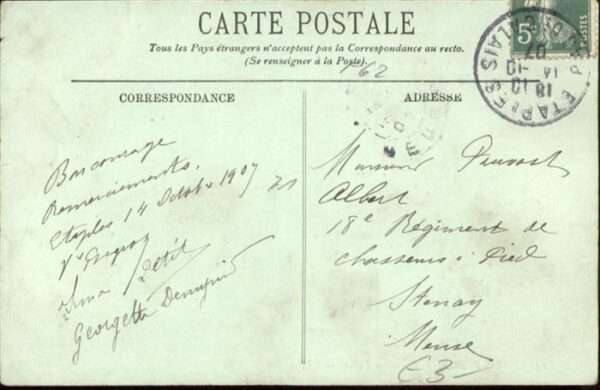 CARTE POSTALE
Tous les Pays étrangers n'acceptent pas la Correspondance au recto.
(Se renseigner à la Poste).
5c
ETAPLES
PAS-DE-CALAIS
18 10
14 -10
07
CORRESPONDANCE
Bon courage
Remerciements.
Etaples 14 Octobre 1907
Irma Petit
Georgette
ADRESSE
Monsieur Pruvost
Albert
18e Régiment de
chasseurs à Pied
Stenay
Meuse